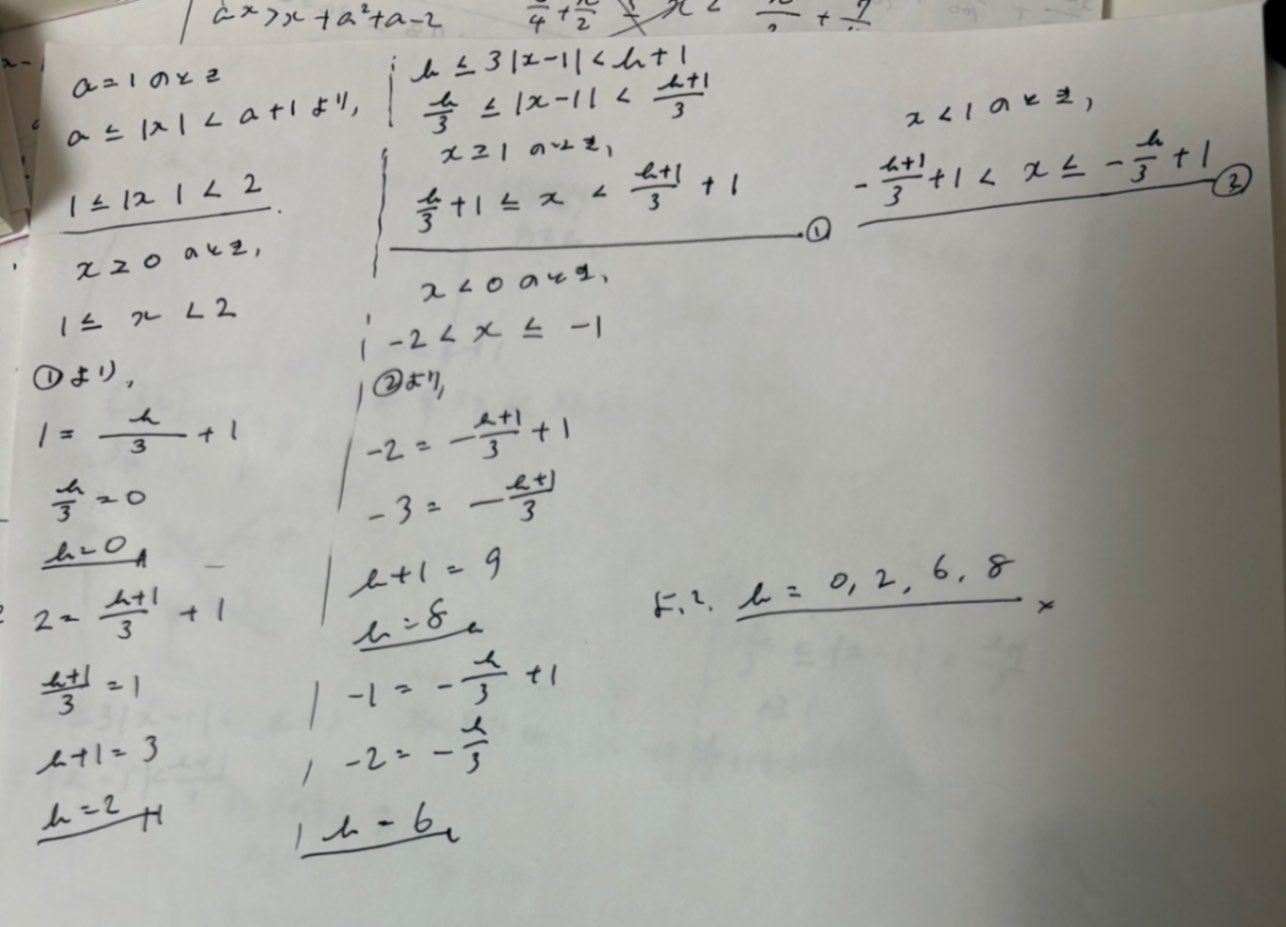 ax>x+a²+a-2
a=1のとき
a≦|x|<a+1より,
1≦|x|<2
x≧0のとき,
1≦x<2
①より,
1=h/3+1
h/3=0
h=0
2=(h+1)/3+1
(h+1)/3=1
h+1=3
h=2
h≦3|x-1|<h+1
h/3≦|x-1|<(h+1)/3
x≧1のとき,
h/3+1≦x<(h+1)/3+1 ①
x<0のとき,
-2<x≦-1
②より,
-2=-(h+1)/3+1
-3=-(h+1)/3
h+1=9
h=8
-1=-h/3+1
-2=-h/3
h=6
x<1のとき,
-(h+1)/3+1<x≦-h/3+1 ②
よって. h=0,2,6,8